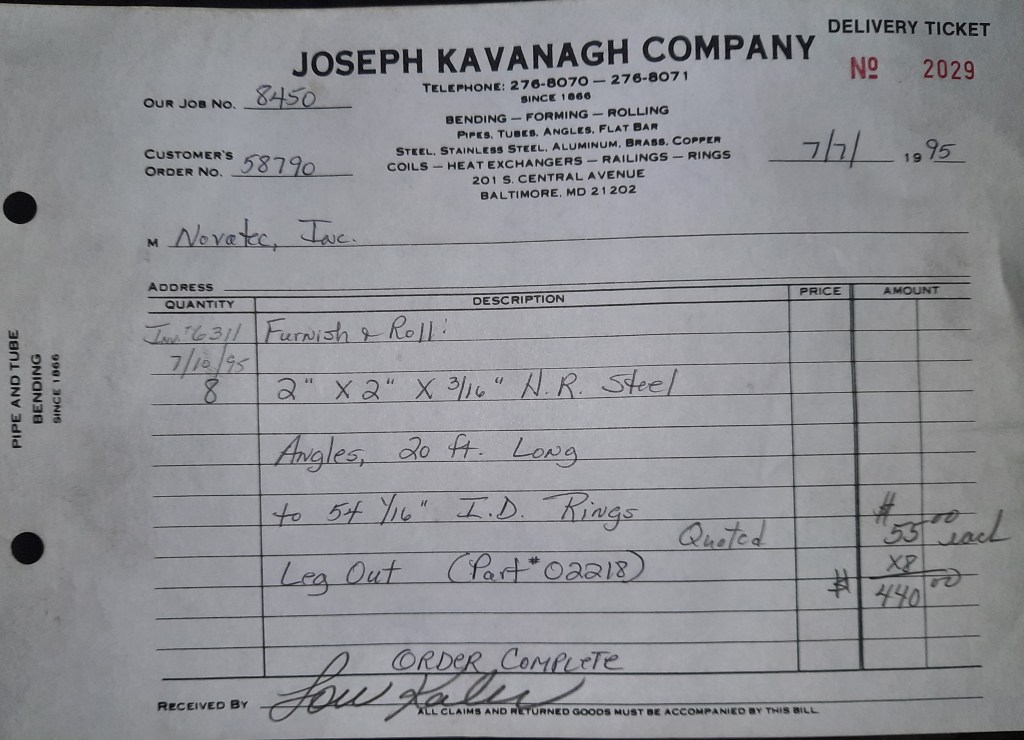 DELIVERY TICKET
JOSEPH KAVANAGH COMPANY
Nº 2029
TELEPHONE: 276-8070 — 276-8071
SINCE 1866
OUR JOB NO. 8450
BENDING — FORMING — ROLLING
PIPES, TUBES, ANGLES, FLAT BAR
STEEL, STAINLESS STEEL, ALUMINUM, BRASS, COPPER
COILS — HEAT EXCHANGERS — RAILINGS — RINGS
201 S. CENTRAL AVENUE
BALTIMORE, MD 21202
CUSTOMER'S
ORDER NO. 58790
7/7/ 1995
M Novatec, Inc.
ADDRESS
QUANTITY DESCRIPTION PRICE AMOUNT
Inv # 6311 Furnish & Roll:
7/10/95
8 2" X 2" X 3/16" H.R. Steel
Angles, 20 ft. Long
to 54 1/16" I.D. Rings
Quoted $55.00 each
X8
Leg Out (Part # 02218) $ 440.00
ORDER COMPLETE
RECEIVED BY Lou
ALL CLAIMS AND RETURNED GOODS MUST BE ACCOMPANIED BY THIS BILL
PIPE AND TUBE
BENDING
SINCE 1866